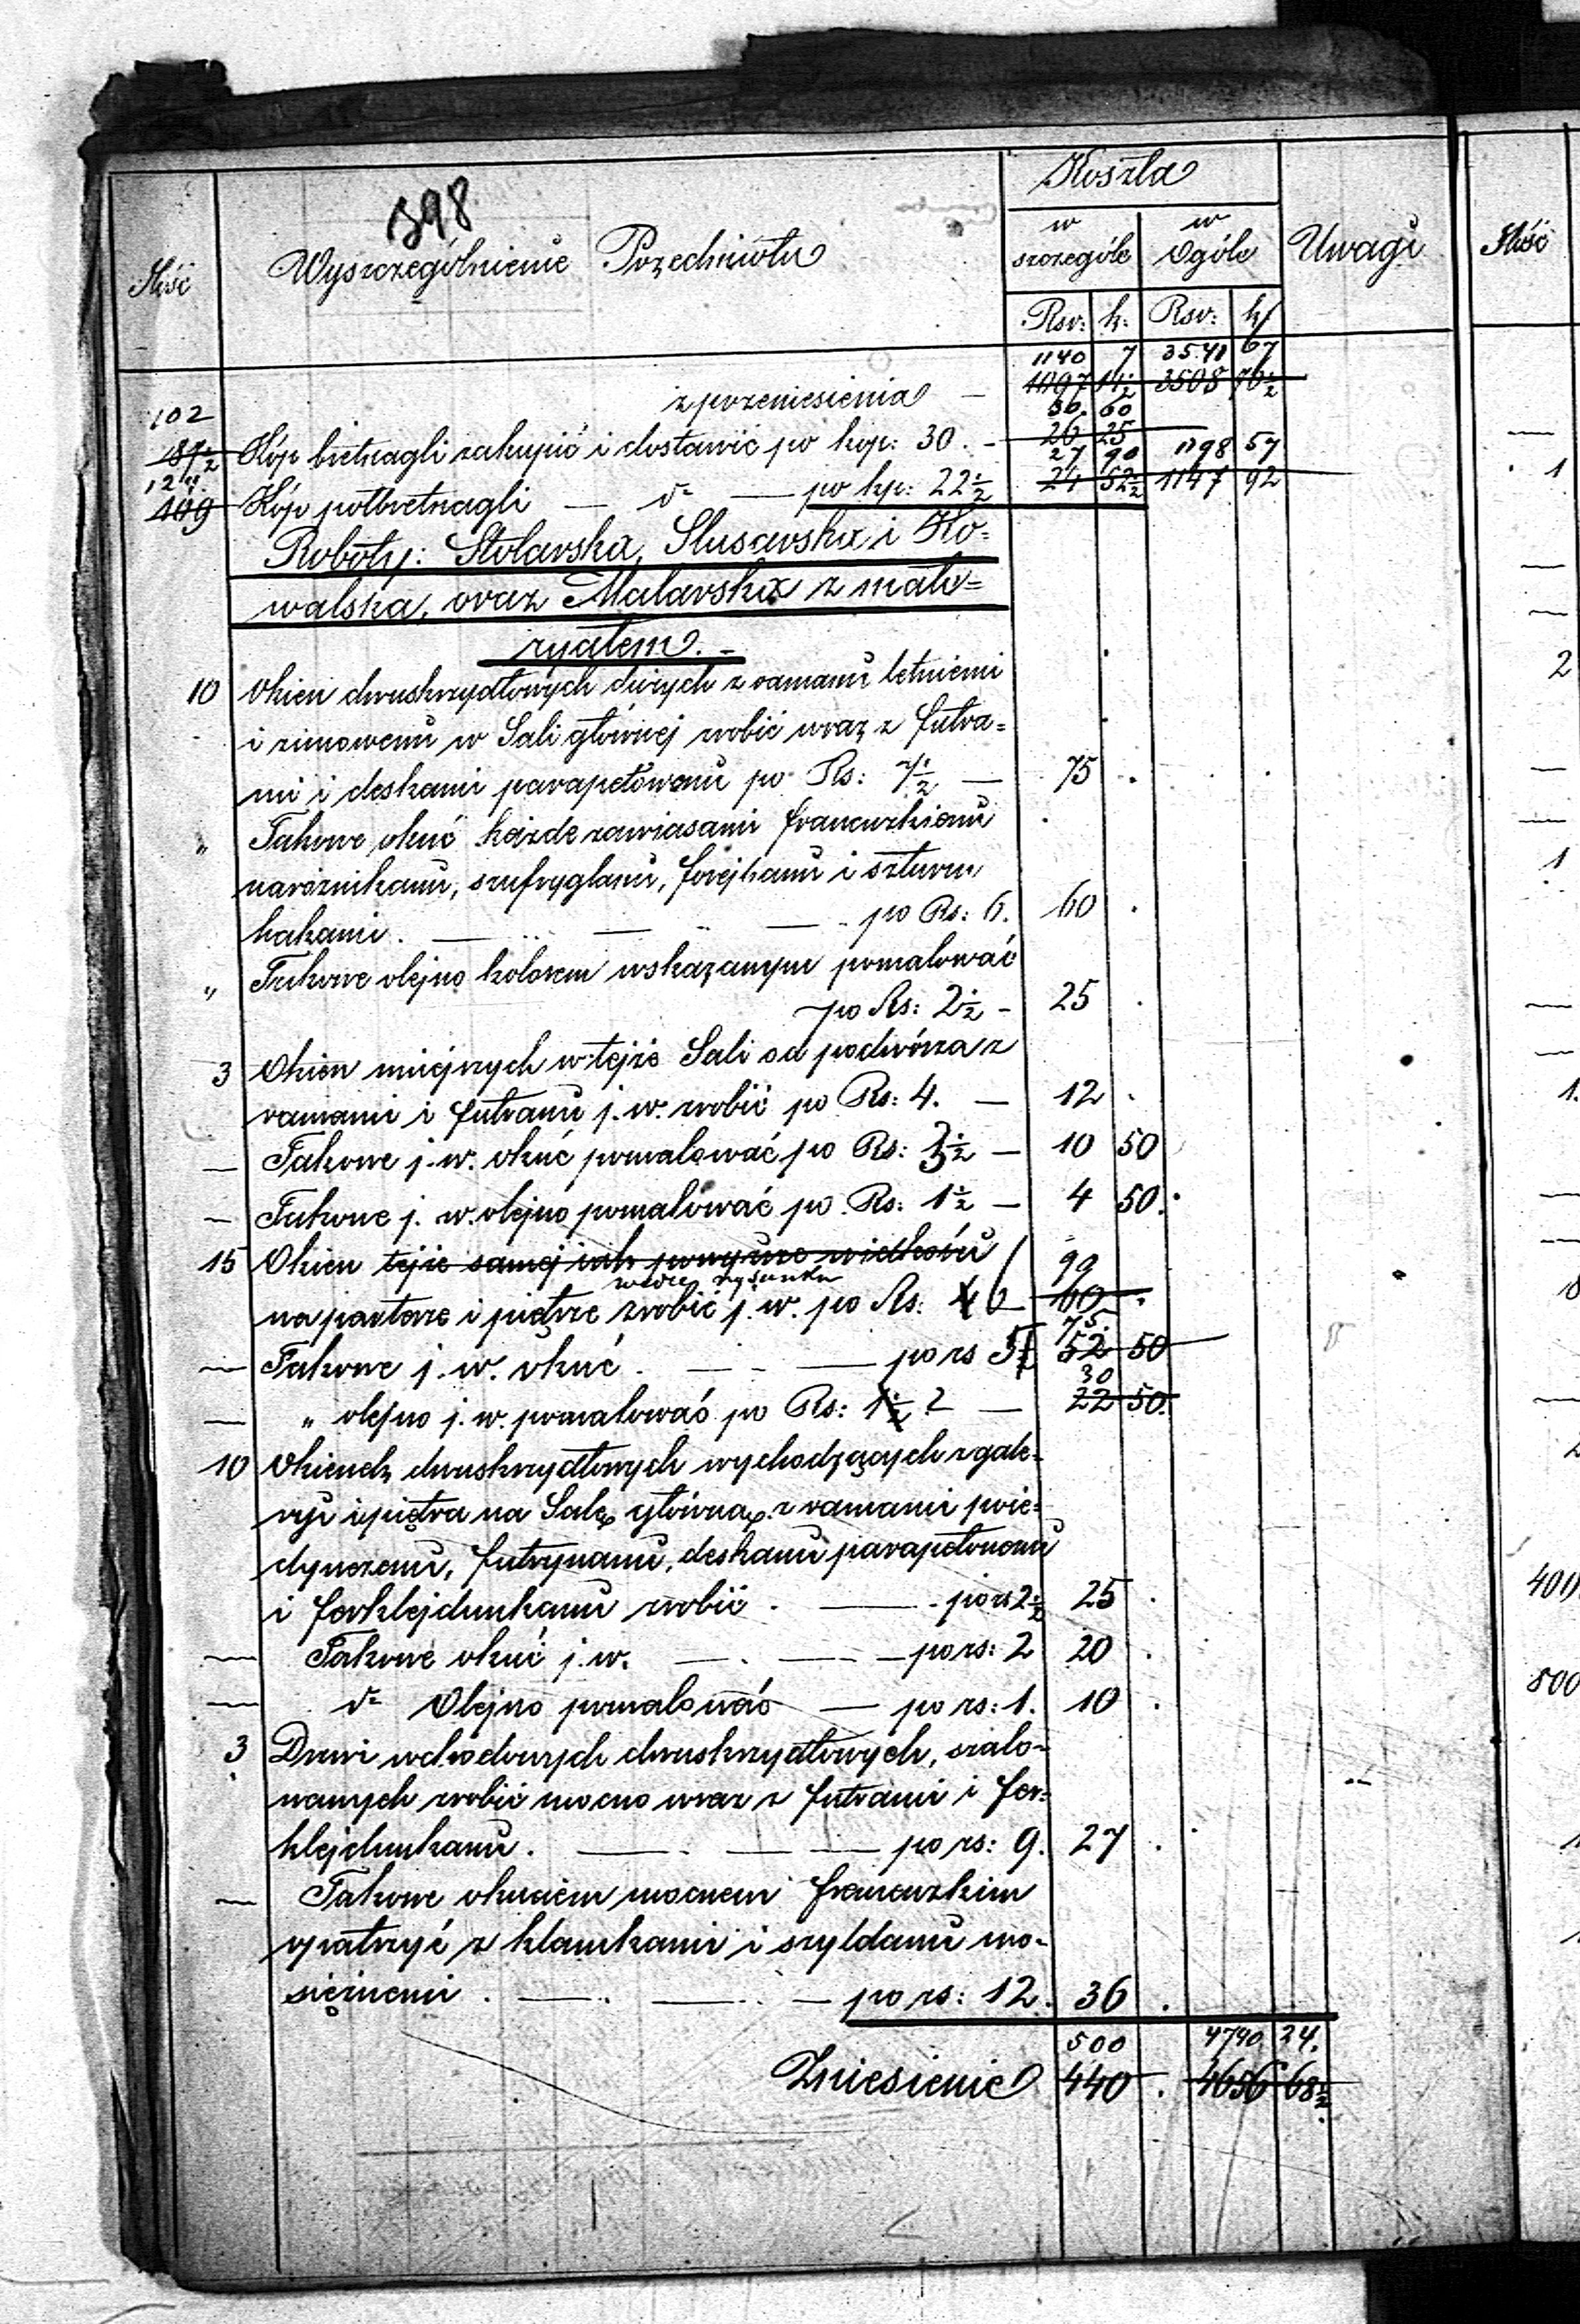 398
Koszta
Ilość Wyszczególnienie Przedmiotu w szczególe w Ogóle Uwagi Ilość
Rsr: k: Rsr: k/
1140 7 3541 67
z przeniesienia – 1097 14½ 3508 76½
102 30. 60
87½ Kóp bretnagli zakupić i dostawić po kop: 30. – 26 25
124 27 90 1198 57
109 Kóp półbretnagli — dº — po kp: 22½ 24 52½ 1147 92
Roboty: Stolarska, Slusarska i Ko=
walska, oraz Malarska z mate=
ryałem. –
10 Okien dwuskrzydłowych dużych z ramami letniemi
i zimowemi w Sali głównej zrobić wraz z futra=
mi i deskami parapetowemi po Rs: 7½ — 75 .
" Takowe okuć każde zawiasami francuzkiemi
narożnikami, szufryglami, forejkami i szturm
hakami. — — — po Rs: 6. 60 .
" Takowe olejno kolorem wskazanym pomalować
po Rs: 2½ – 25 .
3 Okien mniejszych w tejże Sali od podwórza z
ramami i futrami j. w. zrobić po Rs: 4. — 12 .
— Takowe j. w. okuć pomalować po Rs: 3½ — 10 50
— Takowe j. w. olejno pomalować po Rs: 1½ — 4 50.
15 Okien tejże samej jak powyższe wielkości 90
wedle rysunku
na parterze i piętrze zrobić j. w. po Rs: 4 6 60 .
75.
— Takowe j. w. okuć . — — po rs 5 52 50
30
— " olejno j. w. pomalować po Rs: 1½ 2 — 22 50.
10 Okienek dwuskrzydłowych wychodzących z gale-
ryi i piętra na Salę główną z ramami poje-
dynczemi, futrynami, deskami parapetowemi
i forklejdunkami zrobić . — po rs 2½ 25 .
— Takowe okuć j. w. — . — — po rs: 2 20 .
— dº Olejno pomalować — po rs: 1. 10 .
3 Drzwi wchodowych dwuskrzydłowych, szalo-
wanych zrobić mocno wraz z futrami i for-
klejdunkami. — . — — po rs: 9. 27 .
— Takowe okuciem mocnem francuzkim
opatrzyć z klamkami i szyldami mo-
siężnemi . — — — po rs: 12. 36 .
500 4740 24.
Zniesienie 440 . 4656 68½